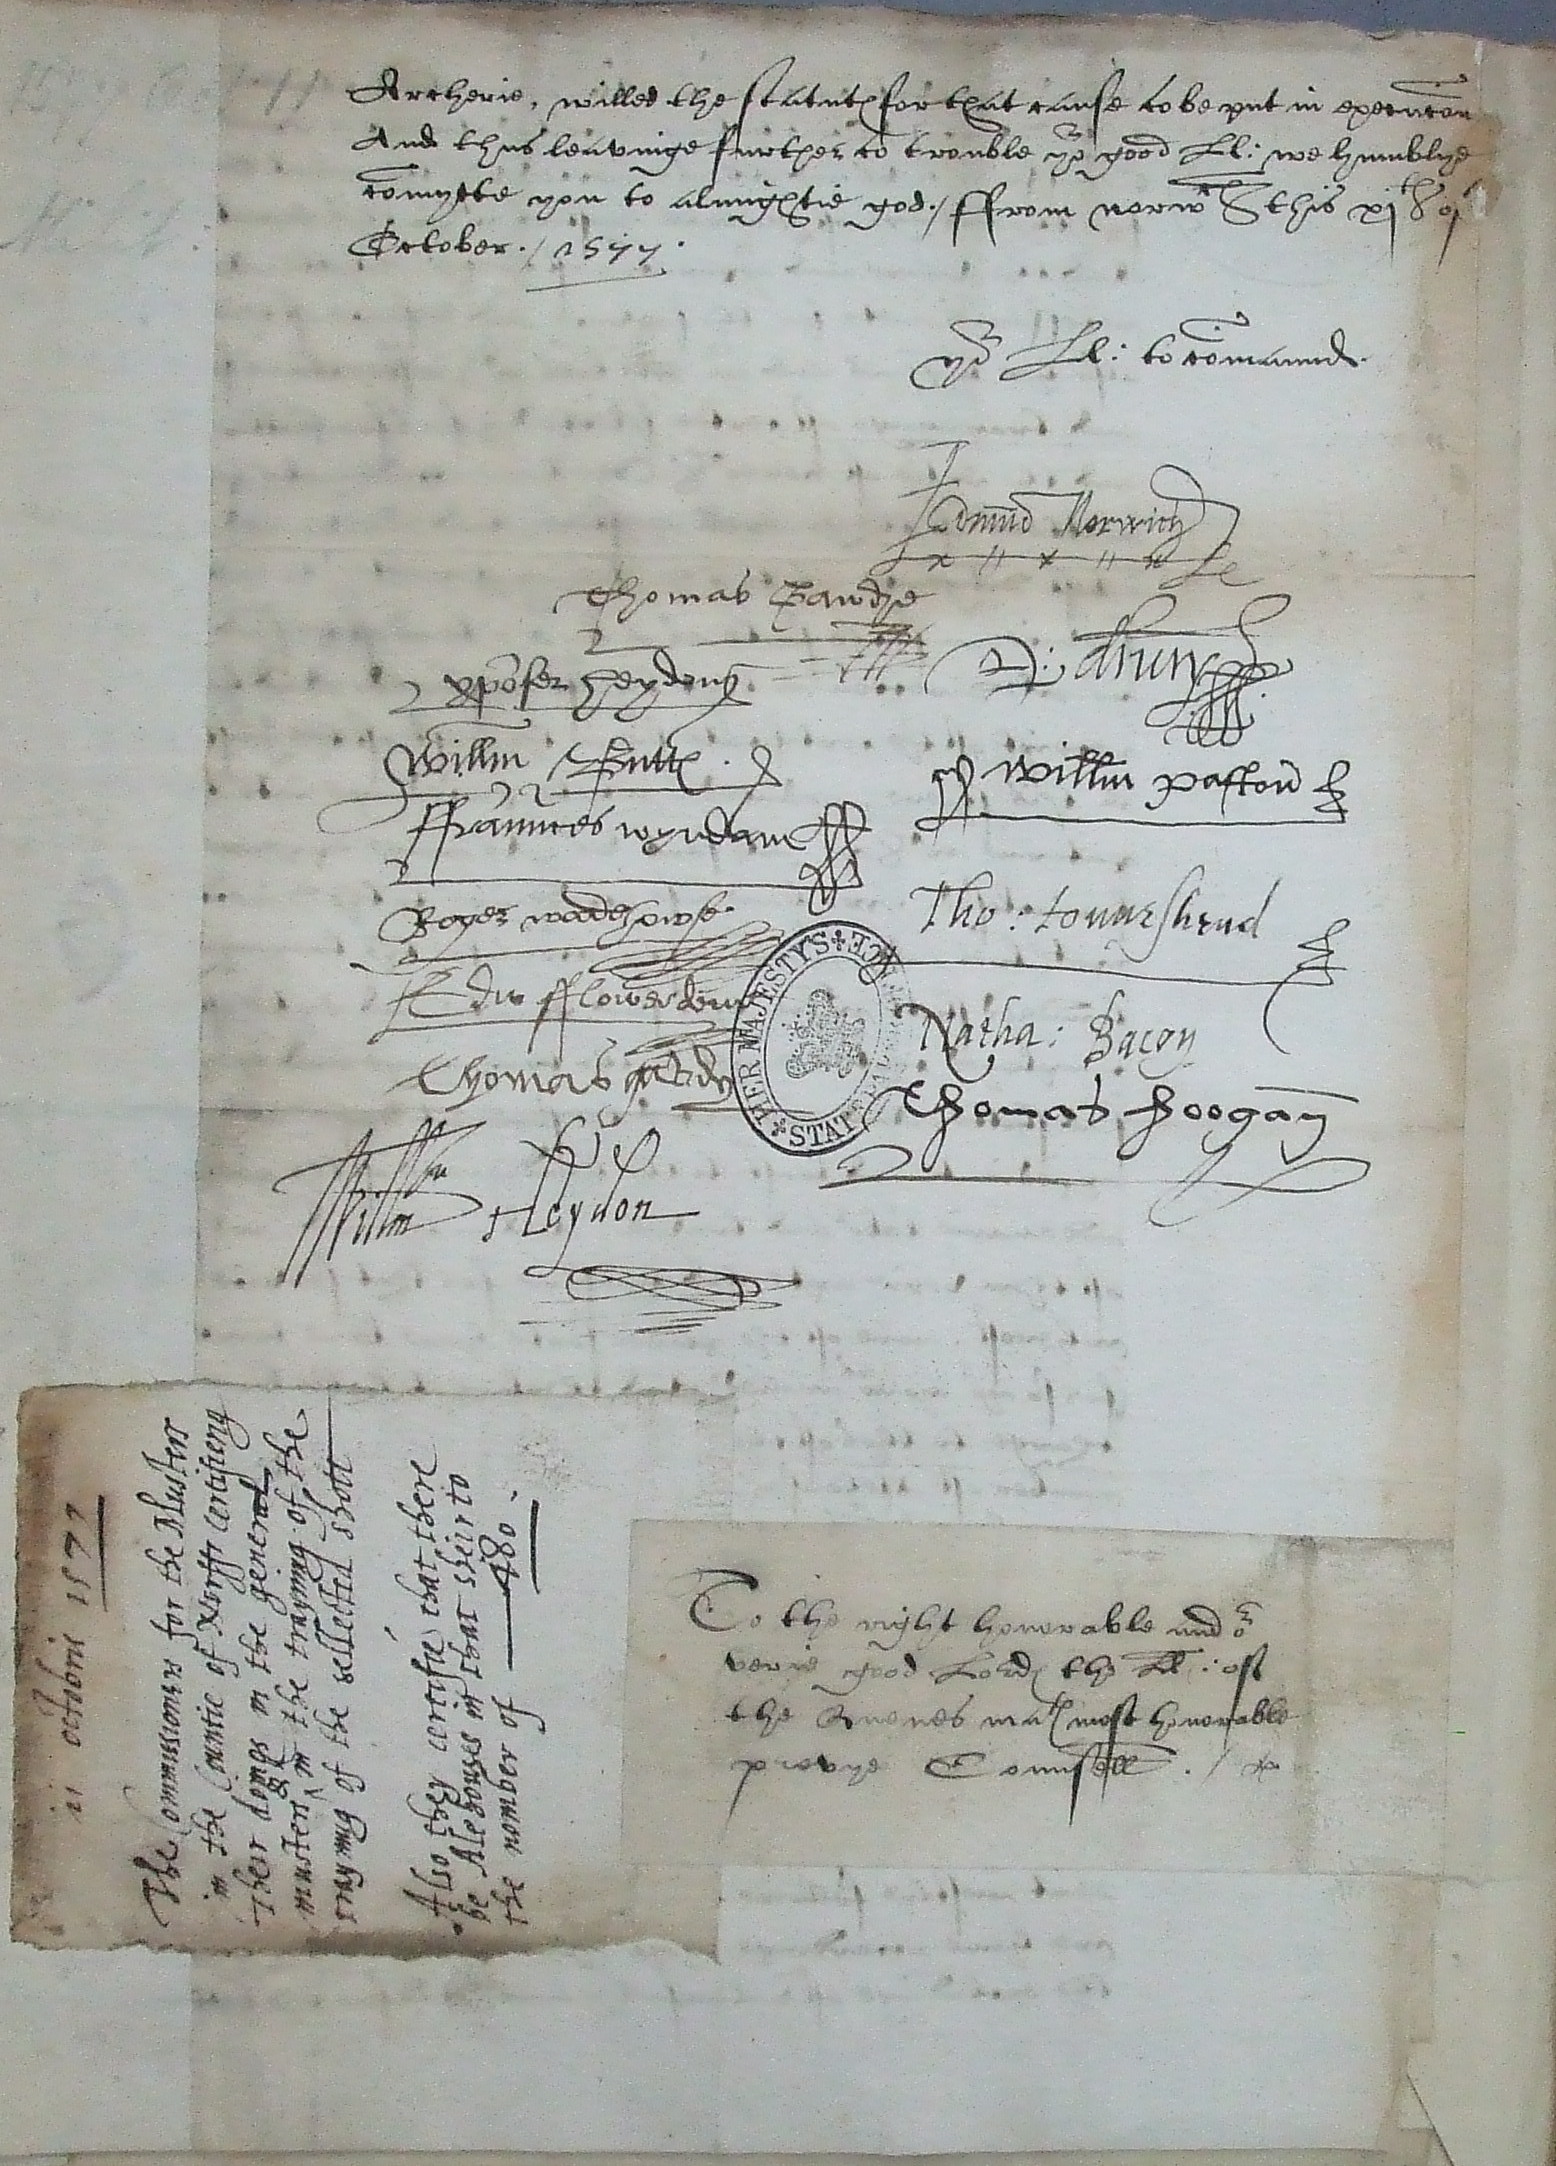 Archerie, willed the statut for that cause to be put in executon
And thus leavinge further to trouble yor good Ll: we humblye
comytte you to almightie god./ ffrom norwch this xjth of
October./ 1577.
yor Ll: to comaund.
Edmund Norwich
Thomas Gawdye
D: drury
xpofer heydon
Willm Butt
Willm paston
ffraunces wyndam
Roger wodehowse
Tho: touneshend
Edw fflowerdewe
Natha: Bacon
Thomas
Thomas hoogan
Willm Heydon
HER MAJESTY'S STATE PAPER OFFICE
ii octobris 1577
The Commissioners for the Musters
in the Countie of Norff certifieng
their doings in the general
musters & in the trayning of the
trayning of the selected shott
Also they certifie that there
be Alehouses in that sheir to
the nomber of 480.
To the right honorable and or
verie good Lord the Ll: of
the Quenes mat most honorable
prevye Counsell./